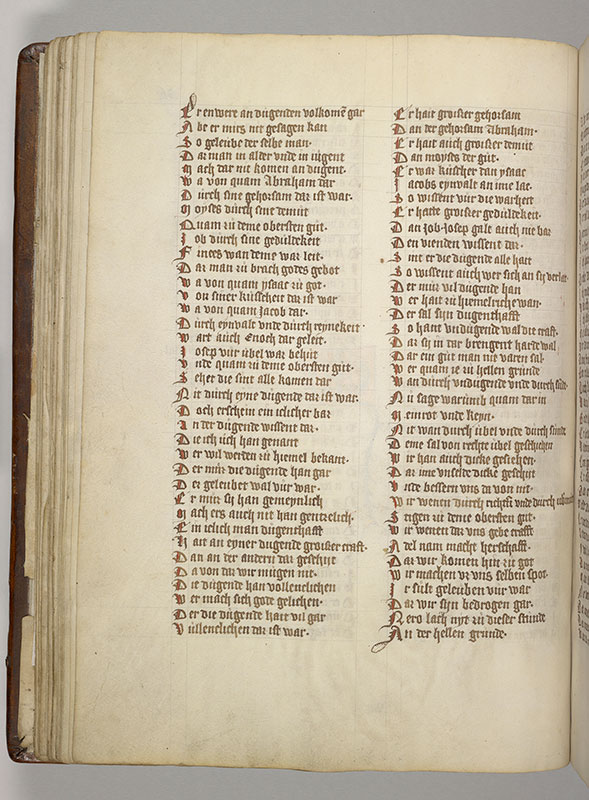 Er en were an dugenden volkome gar
Abe er mirs nit gesagen kan
So geleube der selbe man
Dar man in alder vnde in iugent
Mach dar nit komen an dugent
Wa von quam Abraham dar
Durch sine gehorsam dar ist war
Moyses durch sine demut
Quam zu deme obersten gut
Job durch sine geduldekeit
Finees wan deme war leit
Dar man zu brach godes gebot
Wa von quam ysaac zu got
Von siner kuscheit dar ist war
Wa von quam Jacob dar
Durch eynvalt vnde durch reynekeit
Wart auch Enoch dar geleit
Josep vur ubel war behut
Vnde quam zu deme obersten gut
Seher die sint alle komen dar
Nit durch eyne dugende dar ist war
Doch erschein ein iclicher bar
In der dugende wissent dar
Die ich uch han genant
Wer wil werden zu himel bekant
Der mur die dugende han gar
Der geleubet wal vur war
Er mur sij han gemeynlich
Mach ers auch nit han gentzelich
Ein iclich man dugenthafft
Hait an eyner dugende groisser craft
Dan an der andern dar geschijt
Da von dar wir mugen nit
Die dugende han vollenclichen
Wer mach sich gode gelichen
Der die dugende hait vil gar
Vullenclichen dar ist war
Er hait groisser gehorsam
Dan der gehorsam Abraham
Er hait auch groisser demut
Dan moyses der gut
Er war kuscher dan ysaac
Jacobs eynvalt an ime lac
So wissent vur die warheit
Er hatte groisser geduldekeit
Dan Job Josep galt auch nie bar
Den vienden wissent dar
Mit er die dugende alle hait
So wissent auch wer sich an sij verlat
Der mur vil dugende han
Wer hait zu hiemelriche wan
Der sal sijn dugenthafft
So hant vndugende wal die craft
Dar sij in dar brengent harde wal
Dar ein gut man nie varen sal
Wer quam ie zu hellen grunde
Wan durch vndugende vnde durch sunde
Nu sage warumb quam dar in
Nemrot vnde keyn
Nit wan durch ubel vnde durch sunde
Deme sal von rechte ubel geschehen
Wir han auch dicke gesehen
Dar ime vnselde dicke geschijt
Vnde bessern vns da von nit
Wir wenen durch richeit vnde durch
Stigen zu deme obersten gut
Wir wenen dar vns gebe crafft
Adel nam macht herschafft
Dar wir komen hin zu got
Wir machen vz vns selben spot
Ir sult geleuben vur war
Dar wir sijn bedrogen gar
Nero lach nye zu dieser stunde
An der hellen grunde